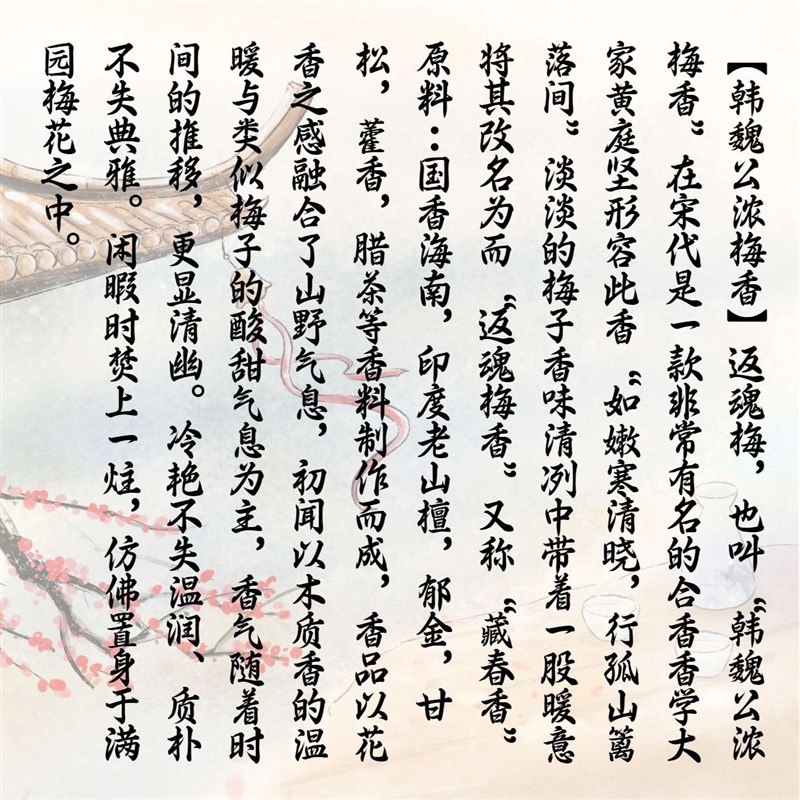 【韩魏公浓梅香】返魂梅，也叫“韩魏公浓
梅香”在宋代是一款非常有名的合香香学大
家黄庭坚形容此香“如嫩寒清晓，行孤山篱
落间”淡淡的梅子香味清冽中带着一股暖意
将其改名为而“返魂梅香”又称“藏春香”
原料：国香海南，印度老山檀，郁金，甘
松，藿香，腊茶等香料制作而成，香品以花
香之感融合了山野气息，初闻以木质香的温
暖与类似梅子的酸甜气息为主，香气随着时
间的推移，更显清幽。冷艳不失温润、质朴
不失典雅。闲暇时焚上一炷，仿佛置身于满
园梅花之中。